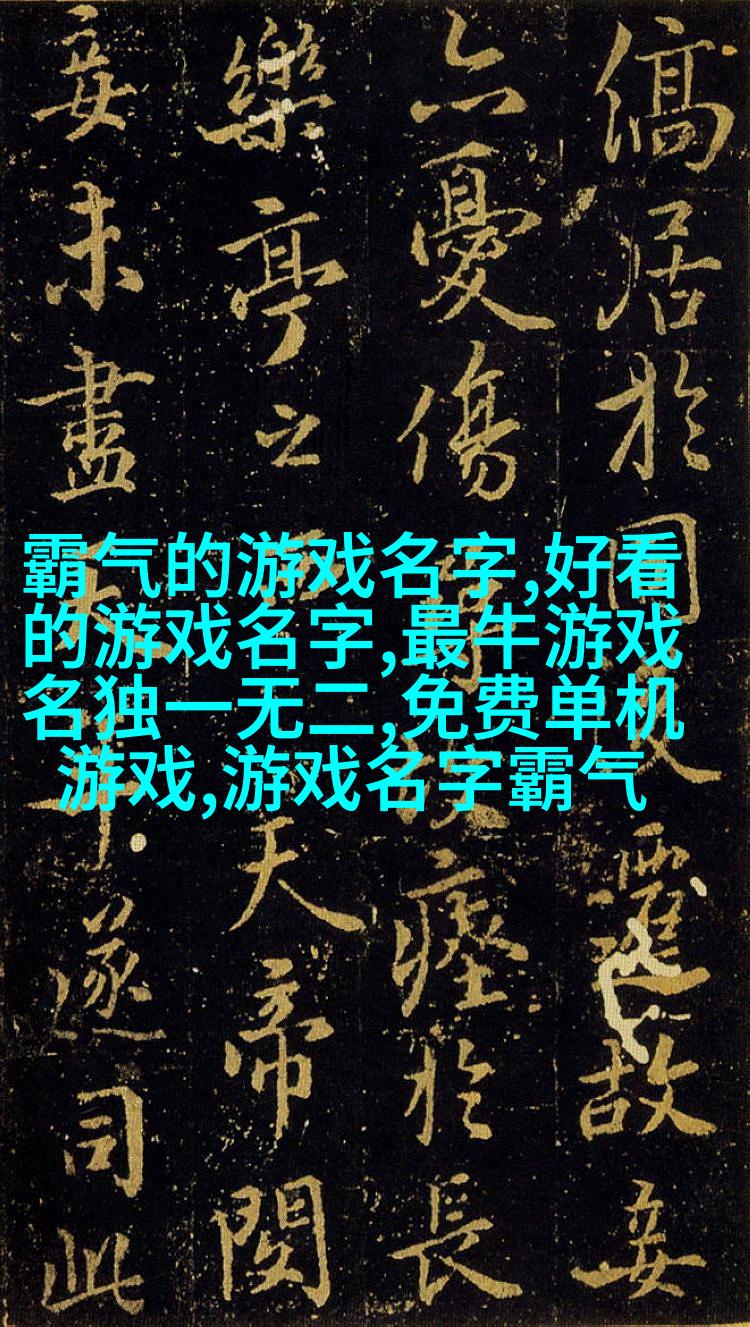 居於故妾
憂傷瘞於長
樂亭之天帝閔
妾未盡天年遂司此
霸气的游戏名字,好看
的游戏名字,最牛游戏
名独一无二,免费单机
游戏,游戏名字霸气